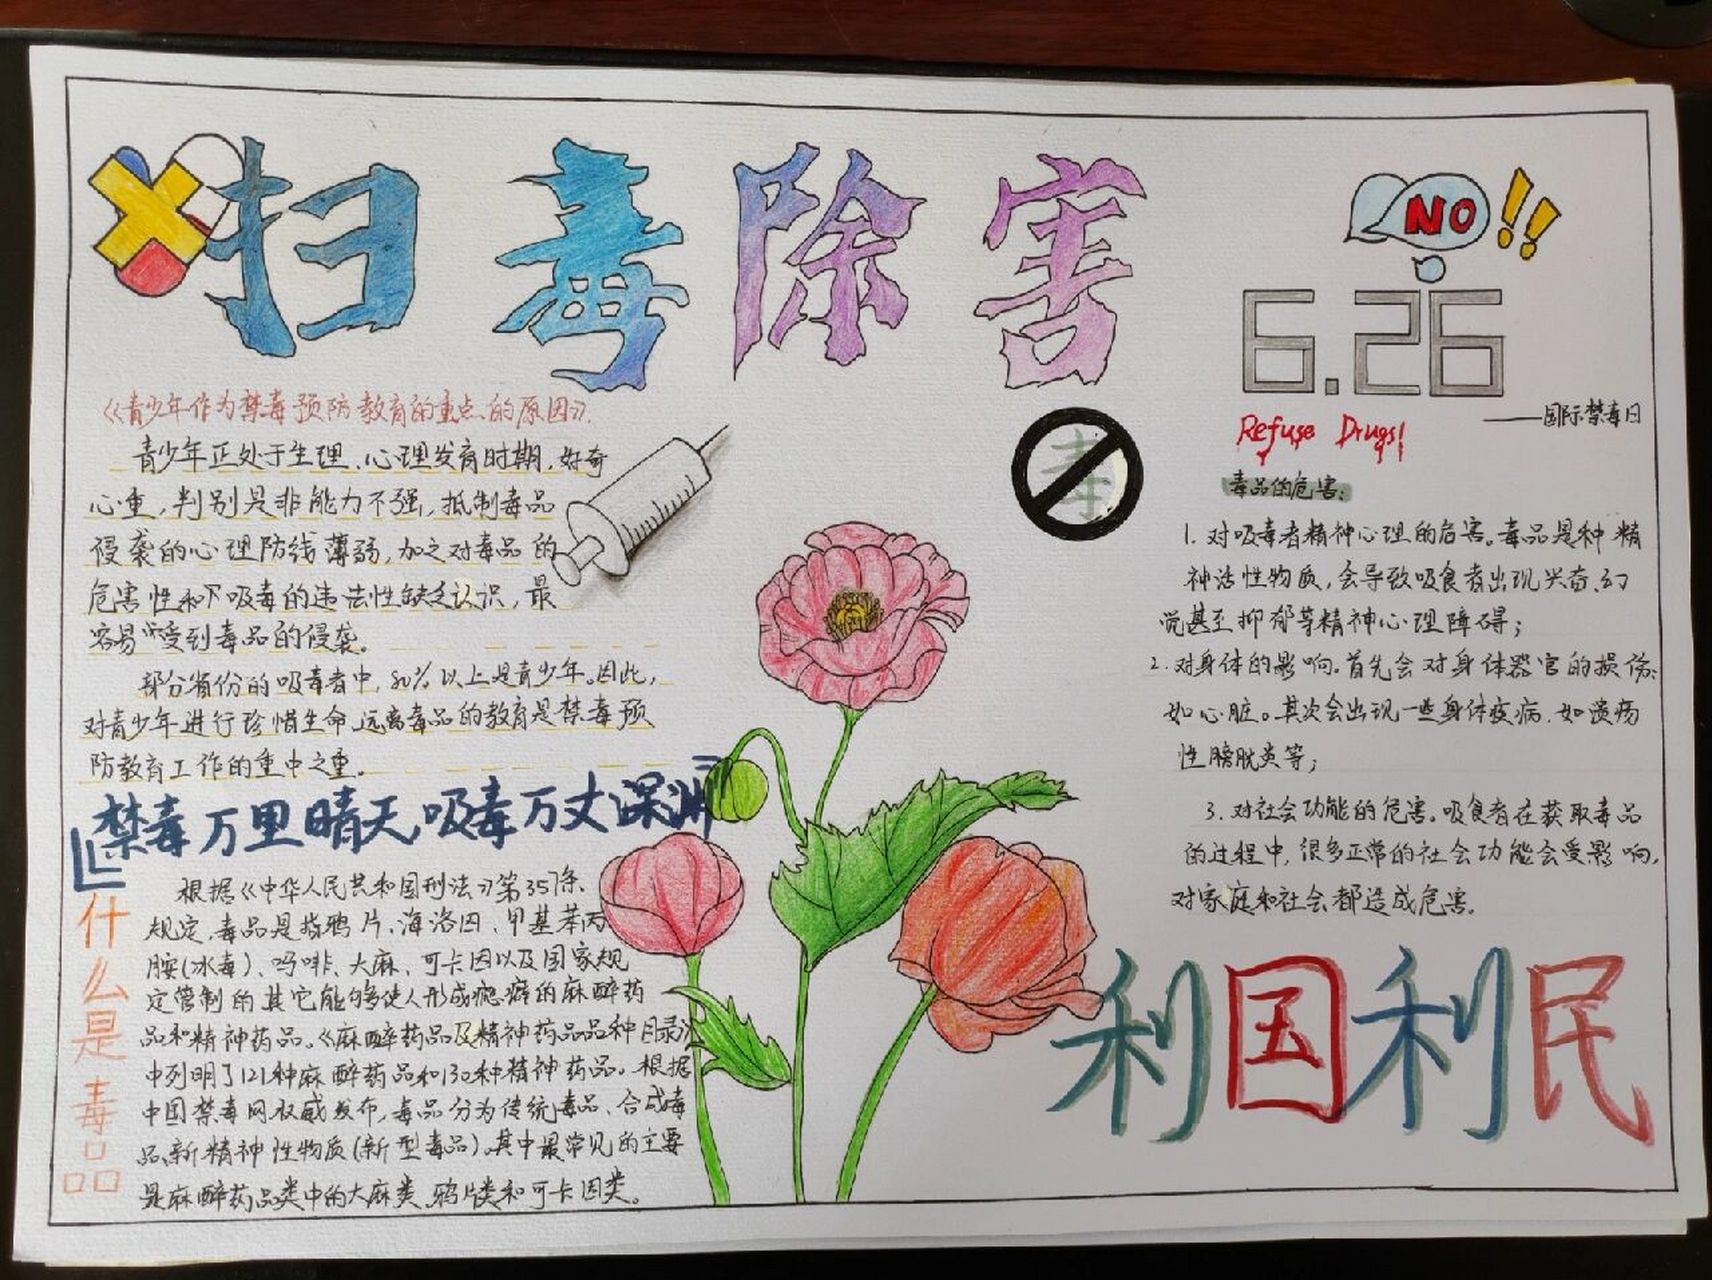 扫毒除害
NO!!
6.26
——国际禁毒日
Refuse Drugs!
《青少年作为禁毒预防教育的重点的原因》.
青少年正处于生理、心理发育时期,好奇
心重,判别是非能力不强,抵制毒品
侵袭的心理防线薄弱,加之对毒品的
危害性和吸毒的违法性缺乏认识,最
容易受到毒品的侵袭。
部分省份的吸毒者中,80%以上是青少年。因此,
对青少年进行珍惜生命,远离毒品的教育是禁毒预
防教育工作的重中之重。
『禁毒万里晴天,吸毒万丈深渊』
什么是毒品
根据《中华人民共和国刑法》第357条
规定,毒品是指鸦片、海洛因、甲基苯丙
胺(冰毒)、吗啡、大麻、可卡因以及国家规
定管制的其它能够使人形成瘾癖的麻醉药
品和精神药品。《麻醉药品及精神药品品种目录》
中列明了121种麻醉药品和130种精神药品。根据
中国禁毒网权威发布,毒品分为传统毒品、合成毒
品、新精神性物质(新型毒品)。其中最常见的主要
是麻醉药品类中的大麻类,鸦片类和可卡因类。
毒
毒品的危害:
1.对吸毒者精神心理的危害。毒品是种精
神活性物质,会导致吸食者出现兴奋、幻
觉甚至抑郁等精神心理障碍;
2.对身体的影响。首先会对身体器官的损伤:
如心脏。其次会出现一些身体疾病,如溃疡
性膀胱炎等;
3.对社会功能的危害。吸食者在获取毒品
的过程中,很多正常的社会功能会受影响,
对家庭和社会都造成危害。
利国利民